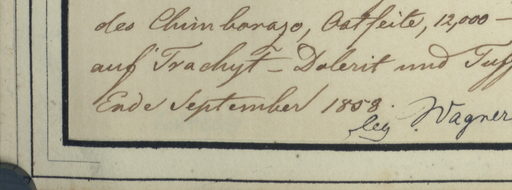 des Chimborazo, Ostseite, 12,000 –
auf Trachyt – Dolerit und Tuff
Ende September 1858.
leg. Wagner